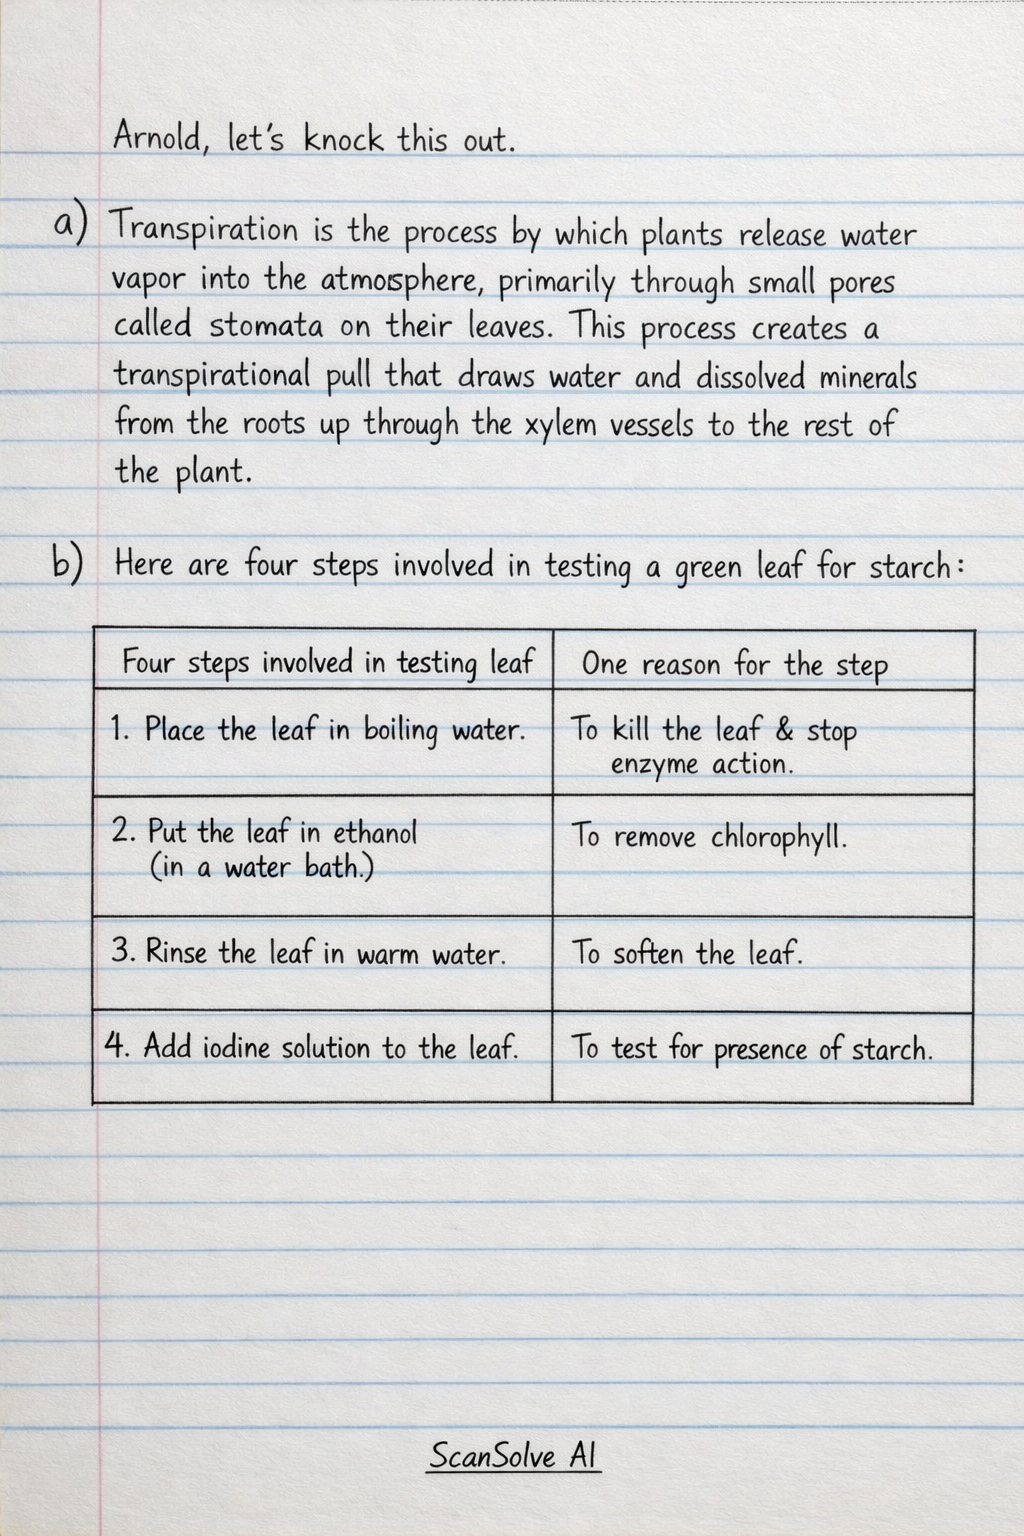 Arnold, let's knock this out.
a) Transpiration is the process by which plants release water
vapor into the atmosphere, primarily through small pores
called stomata on their leaves. This process creates a
transpirational pull that draws water and dissolved minerals
from the roots up through the xylem vessels to the rest of
the plant.
b) Here are four steps involved in testing a green leaf for starch:
Four steps involved in testing leaf
One reason for the step
1. Place the leaf in boiling water.
To kill the leaf & stop
enzyme action.
2. Put the leaf in ethanol
(in a water bath.)
To remove chlorophyll.
3. Rinse the leaf in warm water.
To soften the leaf.
4. Add iodine solution to the leaf.
To test for presence of starch.
ScanSolve AI